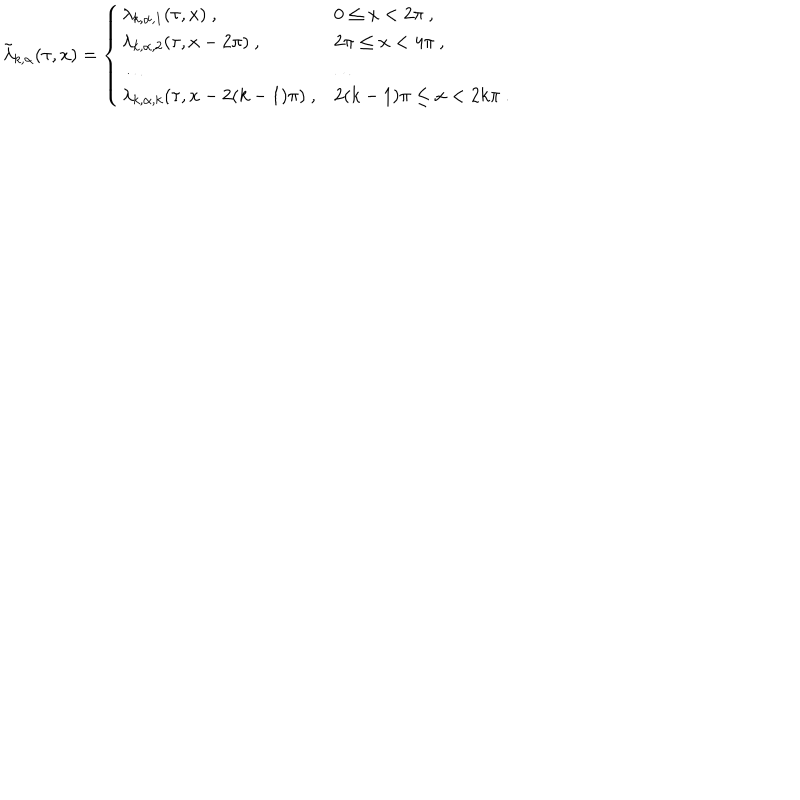 \tilde{\lambda}_{k,\alpha}(\tau, x) = \begin{cases} \lambda_{k,\alpha,1}(\tau, x) \ , & 0 \leq x < 2\pi \ , \\ \lambda_{k,\alpha,2}(\tau, x - 2\pi) \ , & 2\pi \leq x < 4\pi \ , \\ \dots & \dots \\ \lambda_{k,\alpha,k}(\tau, x - 2(k-1)\pi) \ , & 2(k-1)\pi \leq x < 2k\pi \ . \end{cases}